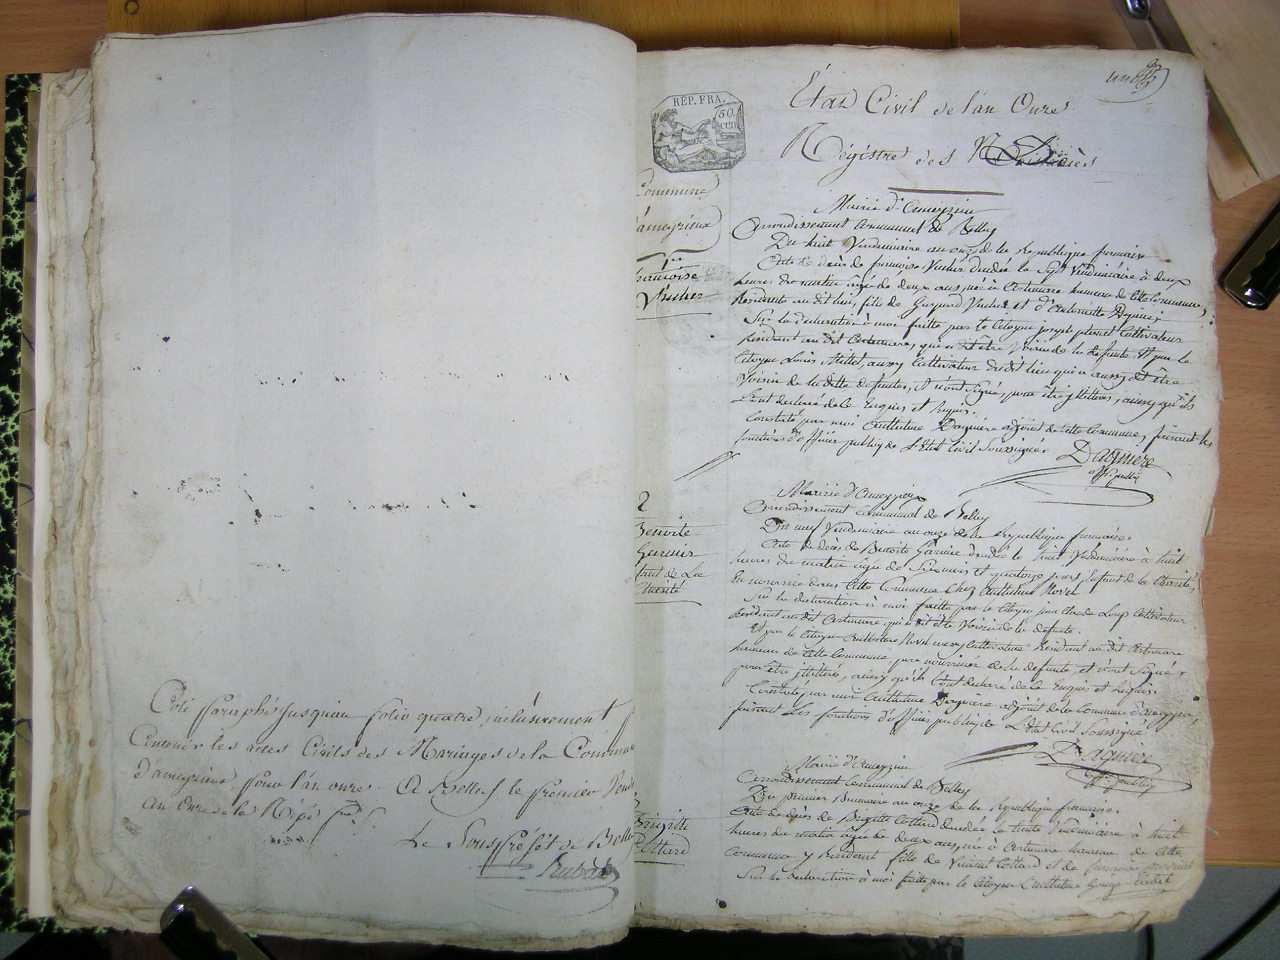 Coté & paraphé jusqu'au folio quatre, inclusivement pr
Contenir les actes Civils des Mariages de la Commune
d'ameyzieux pour l'an onze. A Belley le premier Vend
An Onze de la Rép. fse
Le Sousprefet de Belley
REP. FRA.
50
CEN
Etat Civil de l'an Onze
Régistre des Décès
Commune
d'ameyzieux
1er
françoise
Vucher
Mairie d'Ameyzieu
Arrondissement Communal de Belley
Du huit Vendemiaire an onze de la Republique francaise
Acte de décès de francoise Vucher decedée le sept Vendémiaire à deux
heures du matin agée de deux ans, née à Artemare hameau de cette Commune,
Résidante au dit lieu, fille de Gaspard Vucher et d'Antoinette
Sur la declaration à moi faitte par le Citoyen joseph Cultivateur
Résidant au dit Artemare, qui a dit être Voisin de la défunte Et par le
Citoyen Louis aussy Cultivateur du dit lieu qui a aussy dit être
Voisin de la ditte defunte, et n'ont signé, pour être illitérés, aussy qu'ils
l'ont declaré de ce Enquis et requis.
Constaté par moi Anthelme Dagniere adjoint de cette Commune, faisant les
fonctions d'officier public de l'Etat Civil Soussigné.
Dagniere
off. public
2
Benoite
Garnier
Enfant de La
Charité
Mairie d'Ameyzieu
Arrondissement Communal de Belley
Du neuf Vendemiaire an onze de la Republique francaise.
Acte de décès de Benoite Garnier decedée le huit Vendémiaire à huit
heures du matin agée de Six mois et quatorze jours, Enfant de la Charité,
En nourrice dans cette Commune chez Anthelme
Sur la declaration à moi faitte par le Citoyen jean Claude Loup Cultivateur
Résidant au dit Artemare, qui a dit être Voisin de la defunte.
Et par le Citoyen Anthelme Cultivateur Résidant au dit Artemare
hameau de cette Commune pere nourricier de la defunte, et n'ont Signé,
pour être illitérés, aussy qu'ils l'ont declaré de ce Enquis et requis.
Constaté par moi Anthelme Dagniere adjoint de la Commune d'ameyzieu,
faisant les fonctions d'officier public de l'Etat Civil Soussigné
Dagniere
off. public
3
Brigitte
Cottard
Mairie d'Ameyzieu
Arrondissement Communal de Belley
Du premier Brumaire an onze de la republique francaise.
Acte de décès de Brigitte Cottard decedée le trente Vendemiaire à huit
heures du matin agée de deux ans, née à Artemare hameau de cette
Commune y Résidant fille de Vincent Cottard et de francoise
Sur la declaration à moi faitte par le Citoyen Anthelme